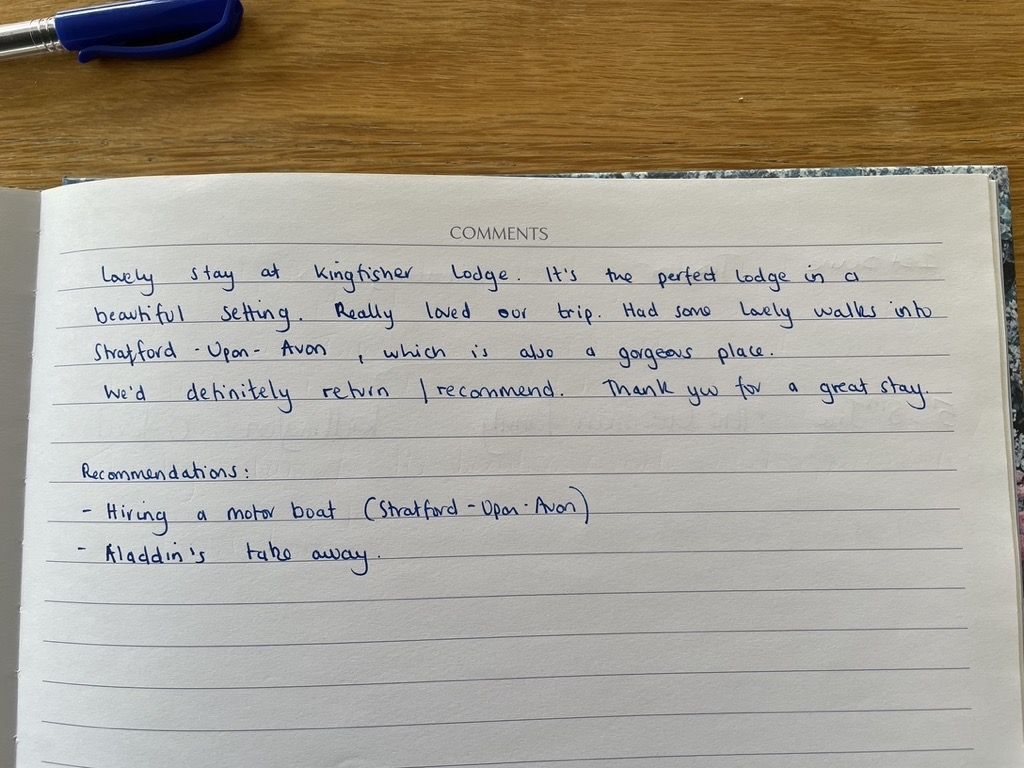 COMMENTS
Lovely stay at Kingfisher Lodge. It's the perfect lodge in a
beautiful setting. Really loved our trip. Had some lovely walks into
Stratford - Upon - Avon , which is also a gorgeous place.
We'd definitely return / recommend. Thank you for a great stay.
Recommendations:
- Hiring a motor boat (Stratford - Upon - Avon)
- Aladdin's take away.